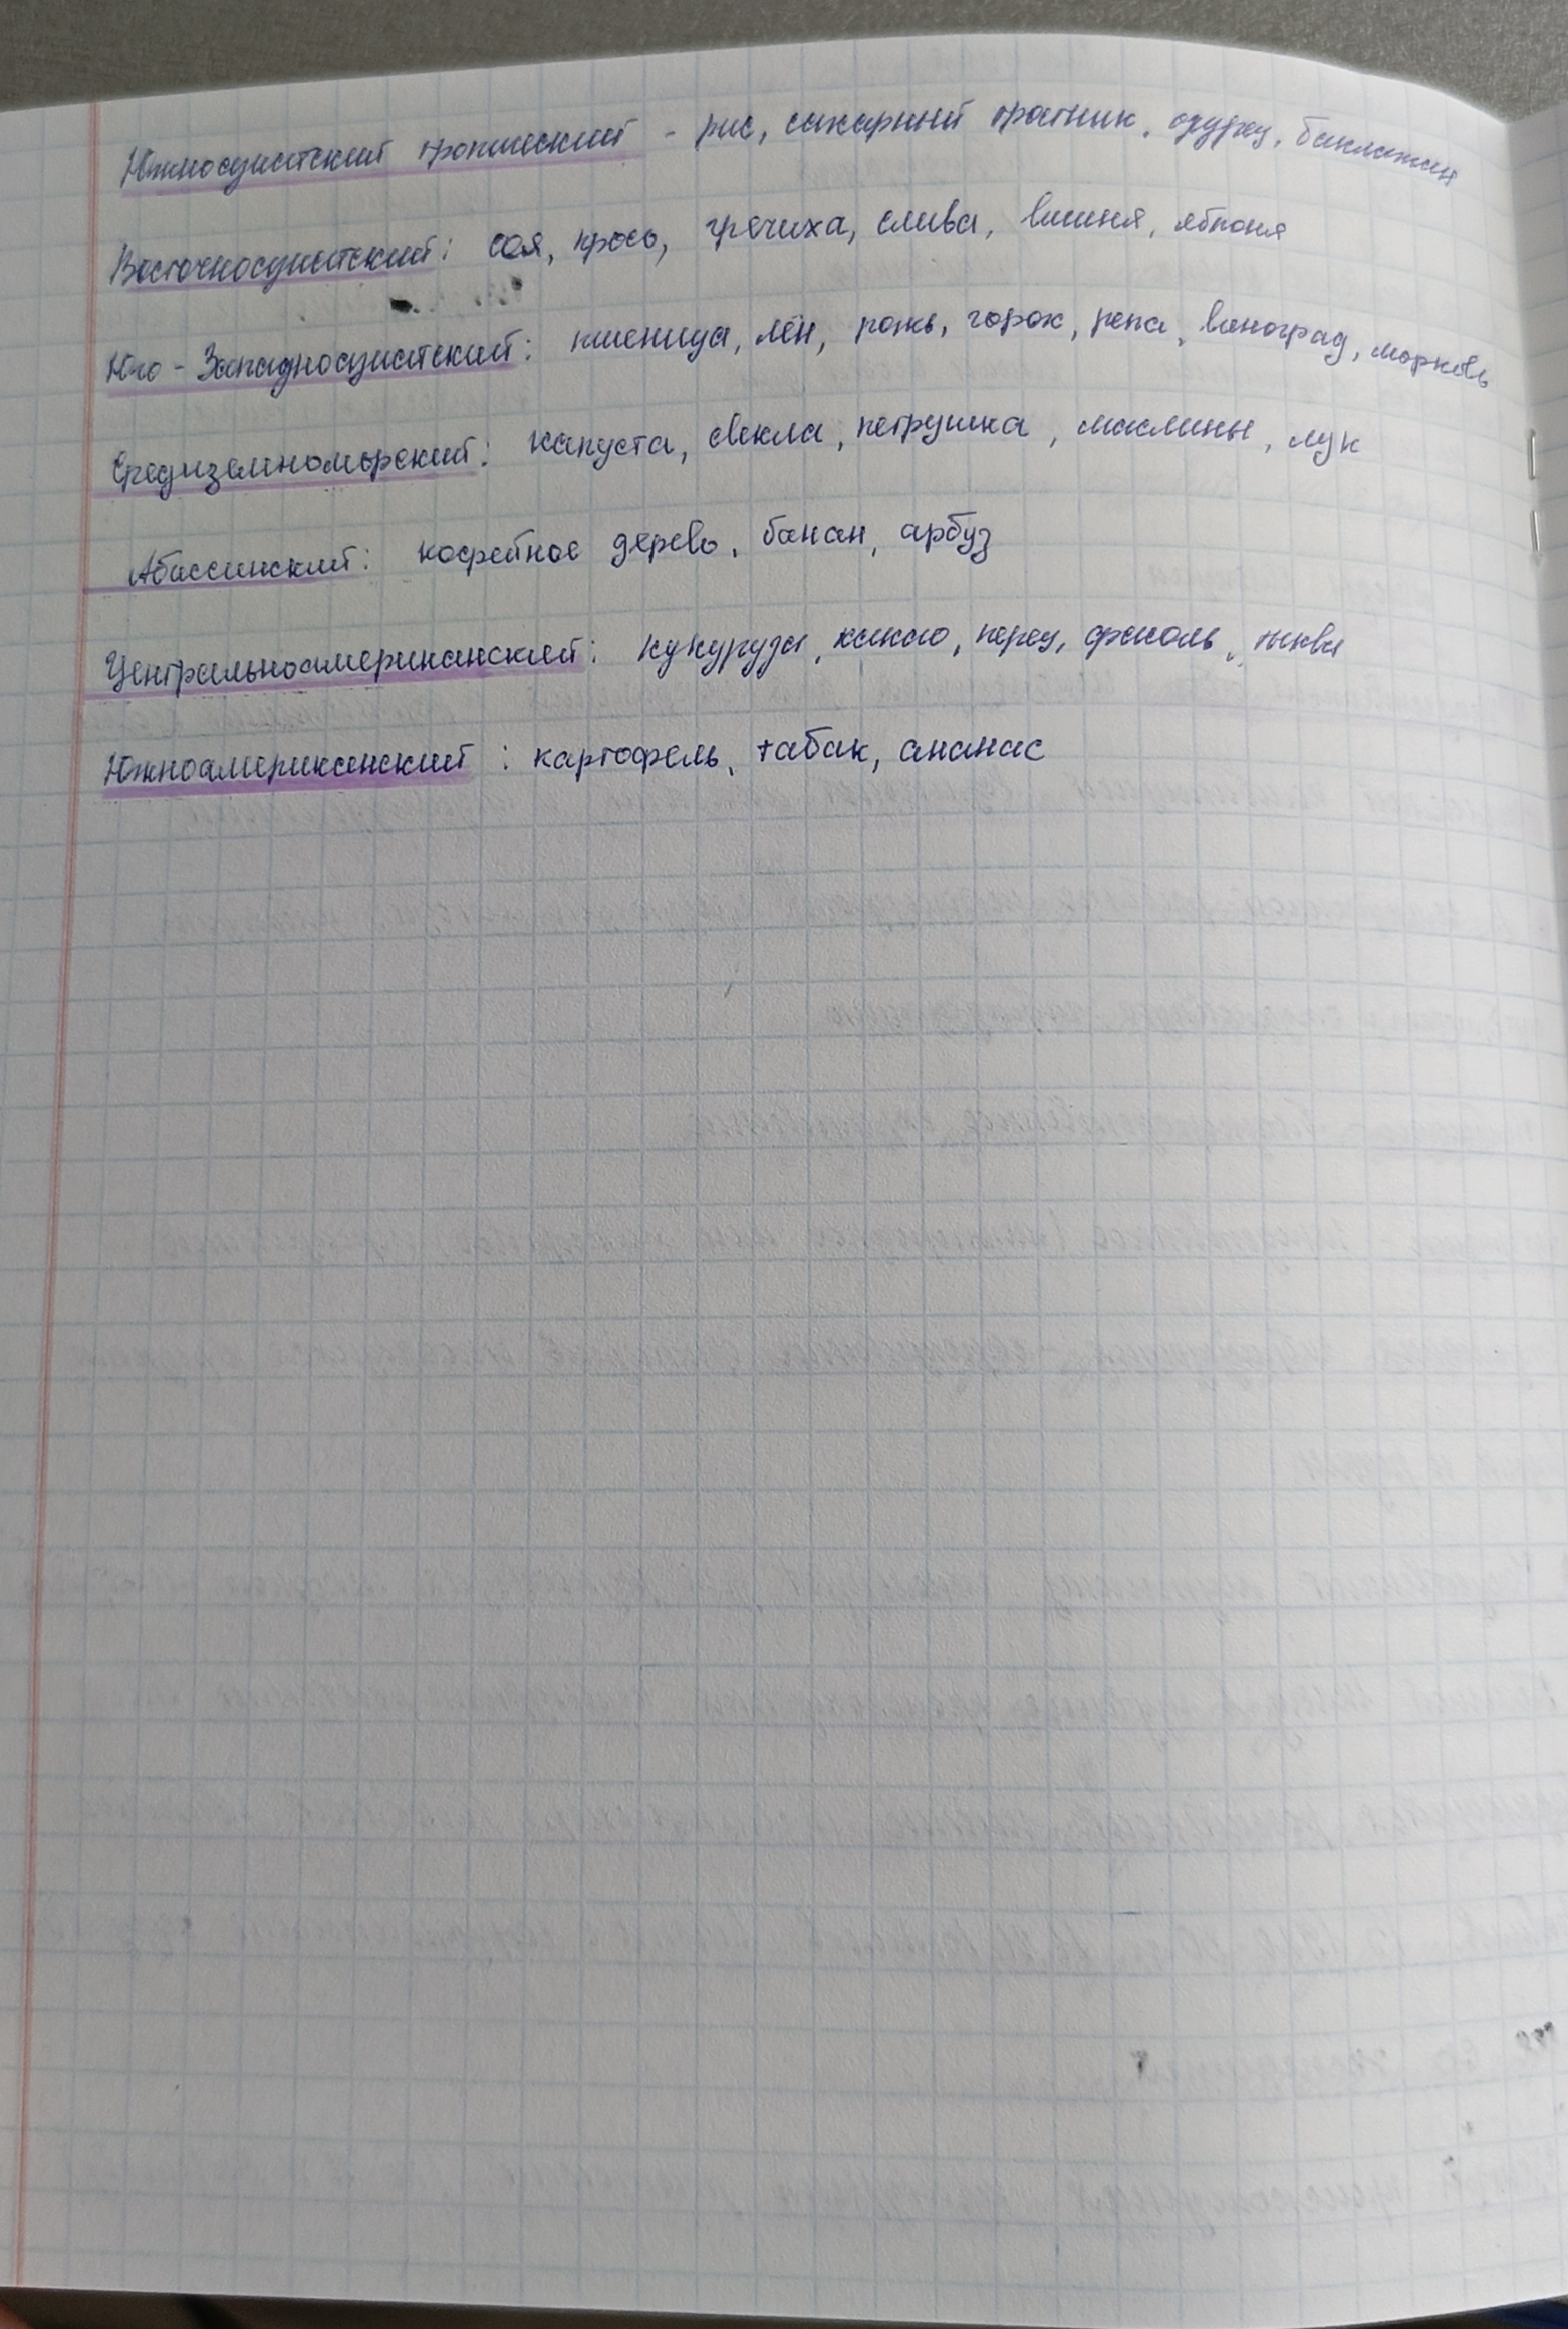 Южноазиатский тропический - рис, сахарный тростник, огурец, баклажан
Восточноазиатский: соя, просо, гречиха, слива, вишня, яблоня
Юго-Западноазиатский: пшеница, лён, рожь, горох, репа, виноград, морковь
Средиземноморский: капуста, свекла, петрушка, маслины, лук
Абассинский: кофейное дерево, банан, арбуз
Центральноамериканский: кукуруза, какао, перец, фасоль, тыква
Южноамериканский: картофель, табак, ананас